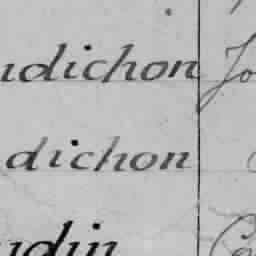 udichon Jo
dichon
udin Co